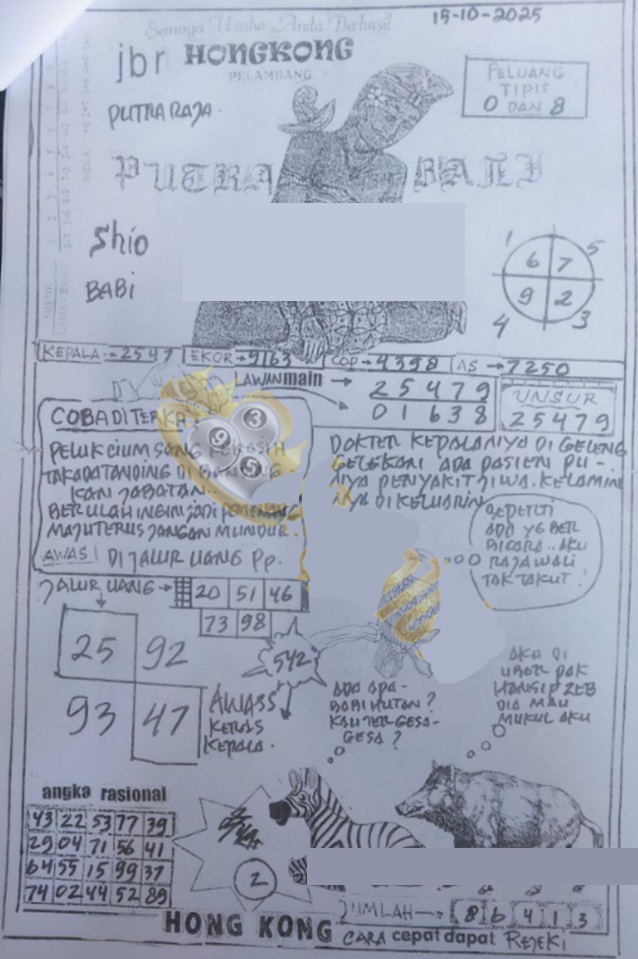 Semoga Usaha Anda Berhasil
15-10-2025
jbr HONGKONG
PELAMBANG
PUTRA RAJA
PELUANG
TIPIS
0 DAN 8
PUTRA BALI
Shio
BABI
1 5
6 7
9 2
4 3
KEPALA→2547 EKOR→9163 COP→4398 AS→7250
LAWAN main → 25479
01638
UNSUR
25479
COBA DITERKA
3
9
5
PELUK CIUM SANG KEKASIH
TAKADATANDING DI
KAN JABATAN..
BERULAH INGIN JADI PEMENANG
MAJUTERUS JANGAN MUNDUR.
AWAS! DI JALUR UANG Pp.
DOKTER KEPALANYA DI GELENG
GELEKANI ADA PASIEN PU-
NYA PENYAKIT JIWA. KELAMIN
NYA DIKELUARIN
SEPERTI
ADD YG BER
BICARA.. AKU
RAJAWALI
TAK TAKUT.
JALUR UANG → 20 51 46
73 98
25 92
93 47
542
AWASS
KERAS
KEPALA.
ADA APA-
BABI HUTAN?
KAU TERGESA-
GESA?
AKU DI
UBER PAK
HANSIP ZEB
DIA MAU
MUKUL AKU
angka rasional
43 22 53 77 39
29 04 71 56 41
64 55 15 99 37
74 02 44 52 89
2
JUMLAH → 8 6 4 1 3
HONG KONG CARA cepat dapat REJEKI